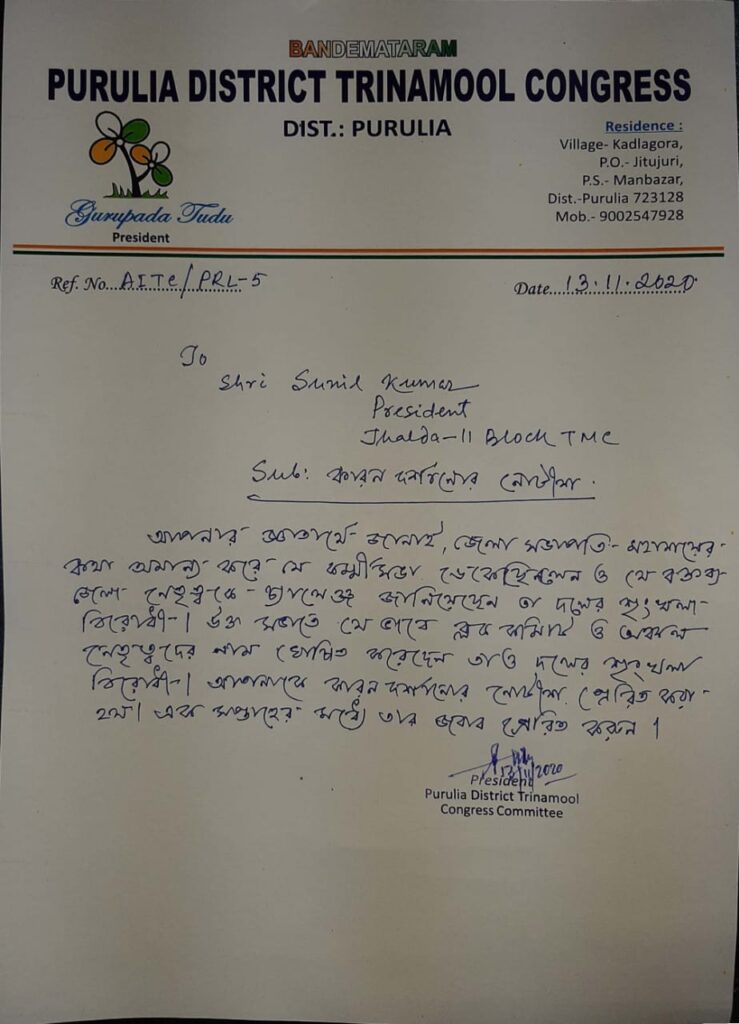 BANDEMATARAM
PURULIA DISTRICT TRINAMOOL CONGRESS
DIST.: PURULIA
Residence :
Village- Kadlagora,
P.O.- Jitujuri,
P.S.- Manbazar,
Dist.-Purulia 723128
Mob.- 9002547928
Gurupada Tudu
President
Ref. No...AITC/PRL-5
Date...13.11.2020
To
Shri Sunil Kumar
President
Jhalda-II Block TMC
Sub: কারন দর্শানোর নোটীশ.
আপনার জ্ঞাতার্থে জানাই, জেলা সভাপতি মহাশয়ের
কথা অমান্য করে যে কর্ম্মীসভা ডেকেছিলেন ও যে বক্তব্য
জেলা নেতৃত্বকে চ্যালেঞ্জ জানিয়েছেন তা দলের শৃংখলা
বিরোধী। উক্ত সভাতে যে ভাবে ব্লক কমিটি ও অঞ্চল
নেতৃত্বদের নাম ঘোষিত করেছেন তাও দলের শৃংখলা
বিরোধী। আপনাকে কারন দর্শানোর নোটীশ প্রেরিত করা
হয়। এক সপ্তাহের মধ্যে তার জবাব প্রেরিত করুন।
13/11/2020
President
Purulia District Trinamool
Congress Committee